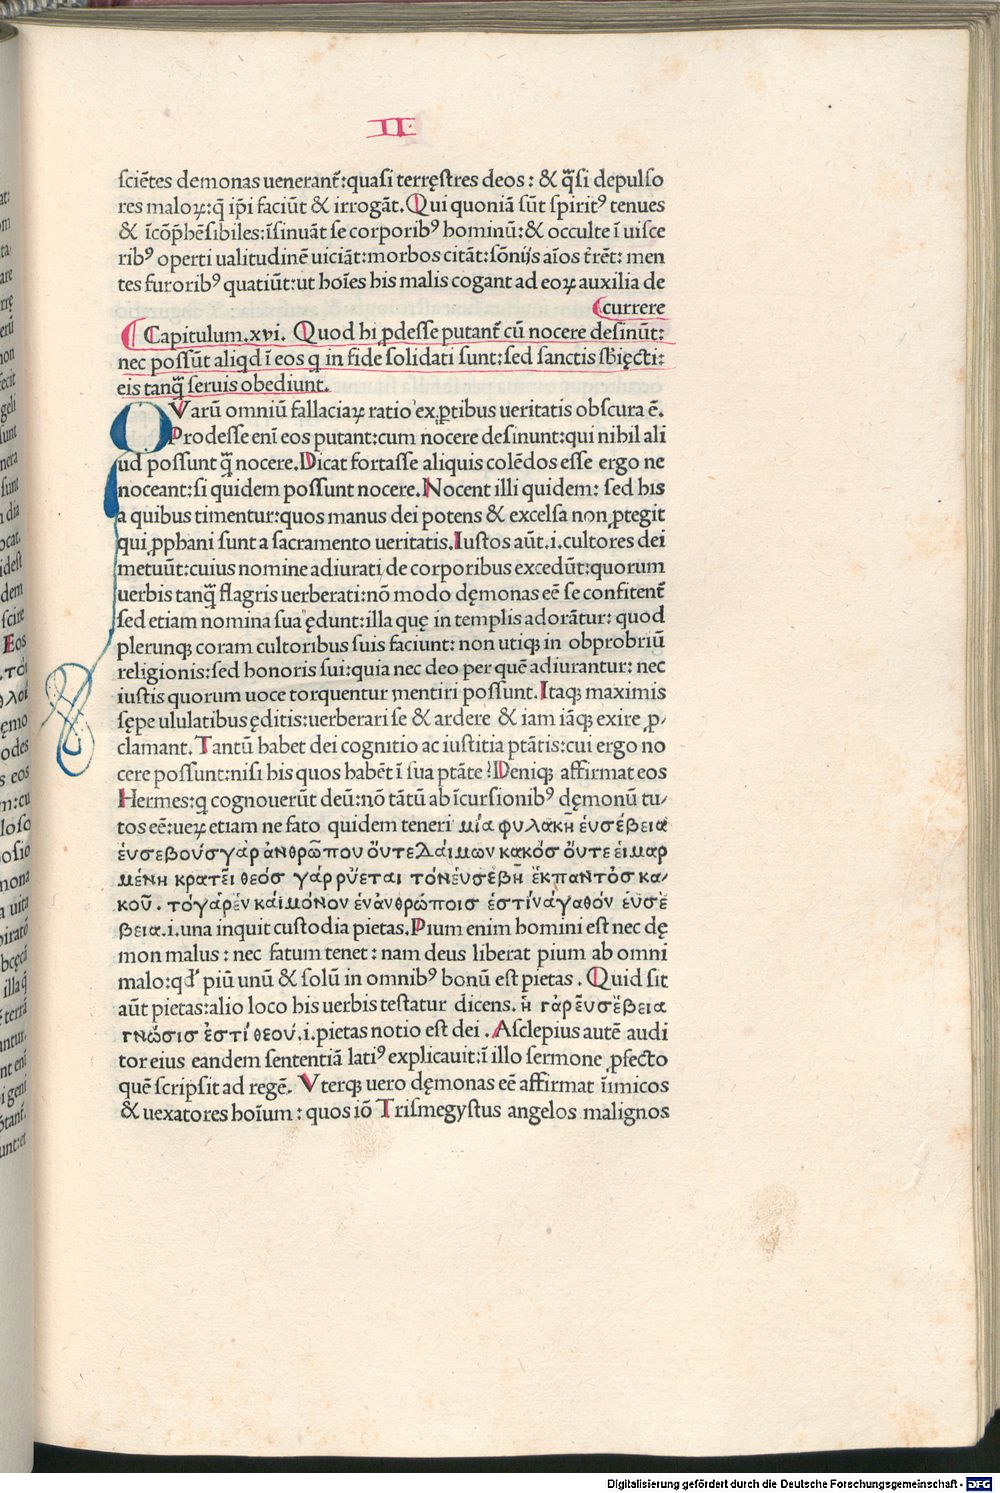 II.
sciētes demonas uenerant̄:quasi terręstres deos: & q̄si depulso
res maloꝝ:q̄ ip̄i faciūt & irrogāt. Qui quoniā sūt spiritꝰ tenues
& īcōp̄hēsibiles:īsinuāt se corporibꝰ hominū:& occulte ī uisce
ribꝰ operti ualitudinē uiciāt:morbos citāt:sōnijs aīos t̄rēt: men
tes furoribꝰ quatiūt:ut hoīes his malis cogant ad eoꝝ auxilia de
currere
Capitulum.xvi. Quod hi ꝓdesse putant̄ cū nocere desinūt:
nec possūt aliqd ī eos q in fide solidati sunt:sed sanctis sb̄ięcti:
eis tanq̄ seruis obediunt.
QVarū omniū fallaciaꝝ ratio exꝑtibus ueritatis obscura ē.
Prodesse enī eos putant:cum nocere desinunt:qui nihil ali
ud possunt q̄ nocere. Dicat fortasse aliquis colēdos esse ergo ne
noceant:si quidem possunt nocere. Nocent illi quidem: sed his
a quibus timentur:quos manus dei potens & excelsa non ꝓtegit
qui ꝓphani sunt a sacramento ueritatis. Iustos aūt.i.cultores dei
metuūt:cuius nomine adiurati de corporibus excedūt:quorum
uerbis tanq̄ flagris uerberati:nō modo dęmonas eē se confitent̄
sed etiam nomina sua ędunt:illa quę in templis adorātur: quod
plerunqꝫ coram cultoribus suis faciunt: non utiqꝫ in obprobriū
religionis:sed honoris sui:quia nec deo per quē adiurantur: nec
iustis quorum uoce torquentur mentiri possunt. Itaqꝫ maximis
sępe ululatibus ęditis:uerberari se & ardere & iam iāqꝫ exire ꝓ/
clamant. Tantū habet dei cognitio ac iustitia ptātis:cui ergo no
cere possunt:nisi his quos habēt ī sua ptāte? Deniqꝫ affirmat eos
Hermes:q cognouerūt deū:nō tātū ab īcursionibꝰ dęmonū tu/
tos eē:ueꝝ etiam ne fato quidem teneri μία φυλακὴ ἐυσέβεια
ἐυσεβοῦσγὰρ ἀνθρῶπου ὄυτεδάιμων κακόσ ὄυτε ἐιμαρ
μένη κρατεῖ θεόσ γὰρ ῥύεται τὸνἐυσεβῆ ἐκπαντὸσ κα/
κοῦ. τὸγὰρἐν καὶμόνον ἐνἀνθρώποισ ἐστὶνἀγαθόν ἐυσέ
βεια.i.una inquit custodia pietas. Pium enim homini est nec dę
mon malus: nec fatum tenet: nam deus liberat pium ab omni
malo:qd' piū unū & solū in omnibꝰ bonū est pietas. Quid sit
aūt pietas:alio loco his uerbis testatur dicens. ἡ γὰρἐυσέβεια
γνώσισ ἐστὶ θεου.i.pietas notio est dei. Asclepius autē audi
tor eius eandem sententiā latiꝰ explicauit:ī illo sermone ꝓfecto
quē scripsit ad regē. Vterqꝫ uero dęmonas eē affirmat īimicos
& uexatores hoīum: quos iō Trismegystus angelos malignos
Digitalisierung gefördert durch die Deutsche Forschungsgemeinschaft - DFG